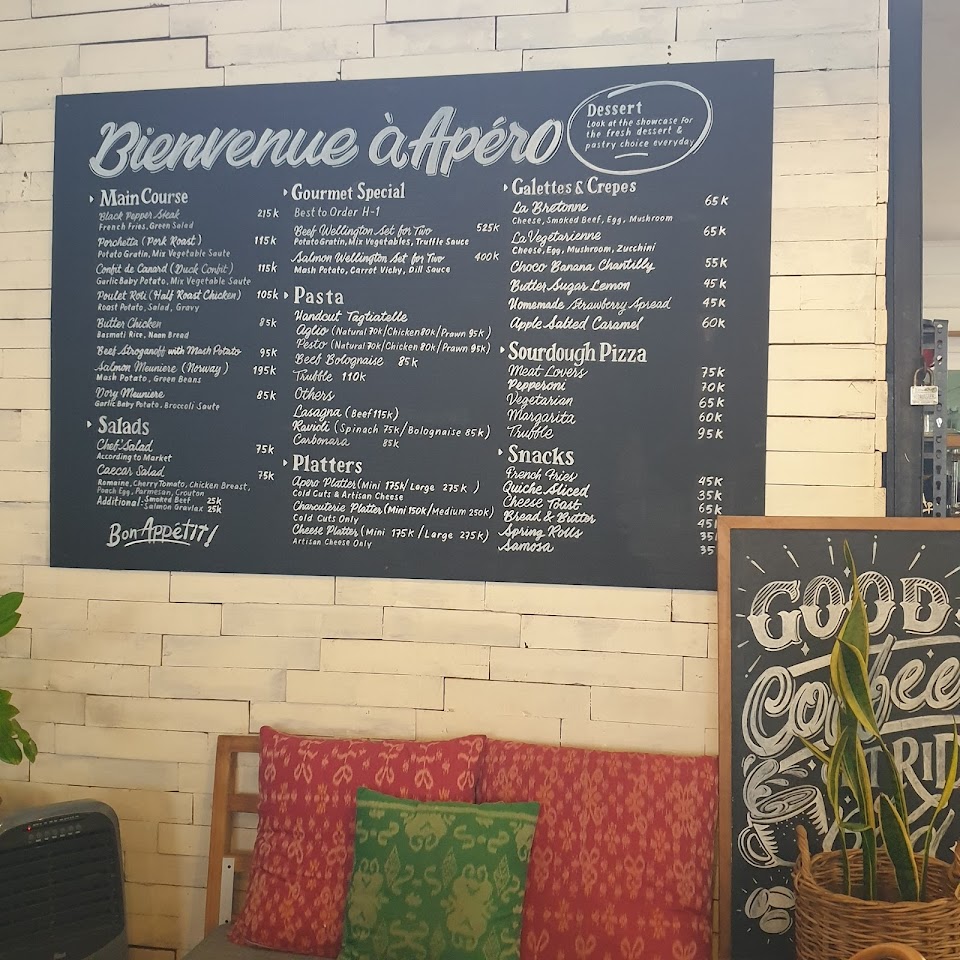 Bienvenue à Apéro
Dessert
Look at the showcase for
the fresh dessert &
pastry choice everyday
Main Course
Black Pepper Steak 215K
French Fries, Green Salad
Porchetta (Pork Roast) 115K
Potato Gratin, Mix Vegetable Saute
Confit de Canard (Duck Confit) 115K
Garlic Baby Potato, Mix Vegetable Saute
Poulet Roti (Half Roast Chicken) 105K
Roast Potato, Salad, Gravy
Butter Chicken 85K
Basmati Rice, Naan Bread
Beef Stroganoff with Mash Potato 95K
Salmon Meuniere (Norway) 195K
Mash Potato, Green Beans
Dory Meuniere 85K
Garlic Baby Potato, Broccoli Saute
Salads
Chef Salad 75K
According to Market
Caecar Salad 75K
Romaine, Cherry Tomato, Chicken Breast,
Poach Egg, Parmesan, Crouton
Additional: Smoked Beef 25K
Salmon Gravlax 25K
Bon Appétit!
Gourmet Special
Best to Order H-1
Beef Wellington Set for Two 525K
Potato Gratin, Mix Vegetables, Truffle Sauce
Salmon Wellington Set for Two 400K
Mash Potato, Carrot Vichy, Dill Sauce
Pasta
Handcut Tagliatelle
Aglio (Natural 70K/Chicken 80K/Prawn 95K)
Pesto (Natural 70K/Chicken 80K/Prawn 95K)
Beef Bolognaise 85K
Truffle 110K
Others
Lasagna (Beef 115K)
Ravioli (Spinach 75K/Bolognaise 85K)
Carbonara 85K
Platters
Apero Platter (Mini 175K/Large 275K)
Cold Cuts & Artisan Cheese
Charcuterie Platter (Mini 150K/Medium 250K)
Cold Cuts Only
Cheese Platter (Mini 175K/Large 275K)
Artisan Cheese Only
Galettes & Crepes
La Bretonne 65K
Cheese, Smoked Beef, Egg, Mushroom
La Vegetarienne 65K
Cheese, Egg, Mushroom, Zucchini
Choco Banana Chantilly 55K
Butter Sugar Lemon 45K
Homemade Strawberry Spread 45K
Apple Salted Caramel 60K
Sourdough Pizza
Meat Lovers 75K
Pepperoni 70K
Vegetarian 65K
Margarita 60K
Truffle 95K
Snacks
French Fries 45K
Quiche Sliced 35K
Cheese Toast 65K
Bread & Butter 45K
Spring Rolls 35
Samosa 35
GOOD
Coffee